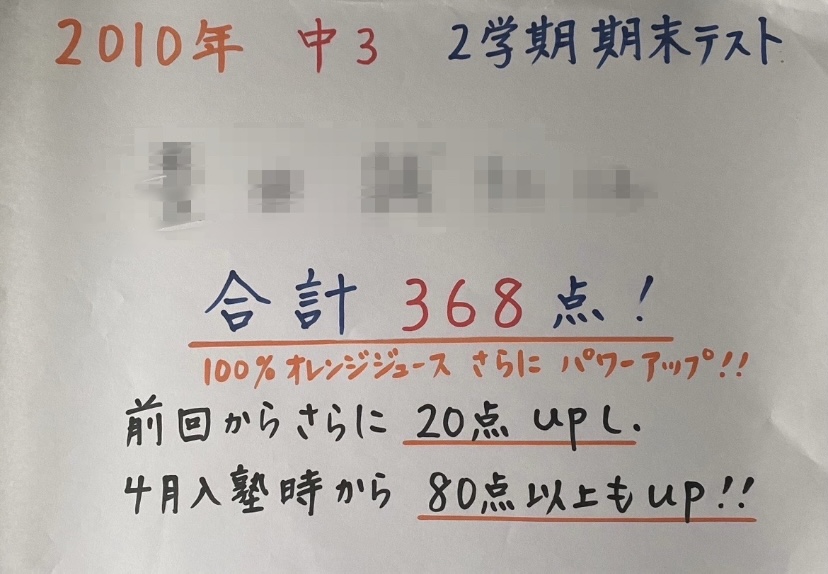 2010年 中3 2学期期末テスト
合計 368点!
100%オレンジジュース さらに パワーアップ!!
前回からさらに 20点 upし.
4月入塾時から 80点以上もup!!